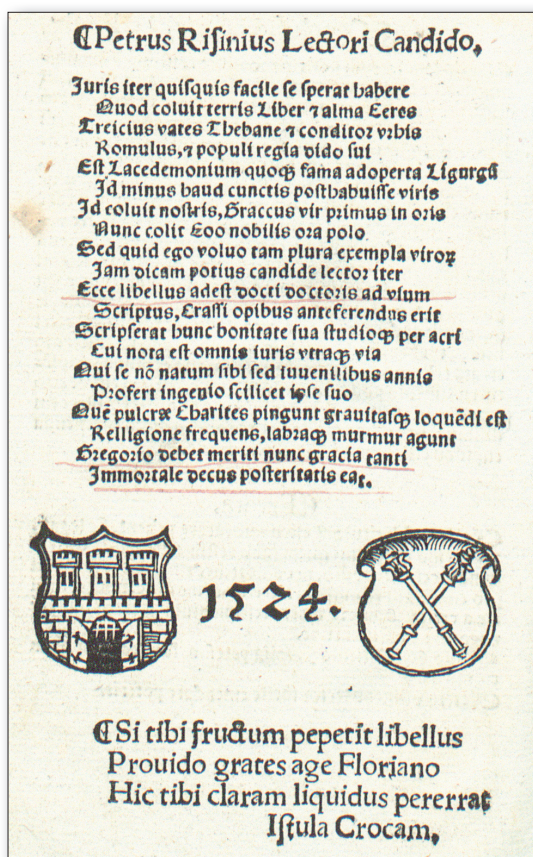 ⁋Petrus Riſinius Lectori Candido,
Juris iter quiſquis facile ſe ſperat habere
Quod coluit terris Liber ⁊ alma Ceres
Treicius vates Thebane ⁊ conditor vrbis
Romulus, ⁊ populi regia vido ſui
Eſt Lacedemonium quoqꝫ fama adoperta Ligurgū
Id minus haud cunctis poſthabuiſſe viris
Id coluit noſtris, Graccus vir primus in oris
Nunc colit Eoo nobilis ora polo
Sed quid ego voluo tam plura exempla viroꝝ
Jam dicam potius candide lector iter
Ecce libellus adeſt docti doctoris ad vſum
Scriptus, Craſſi opibus anteferendus erit
Scripſerat hunc bonitate ſua ſtudioqꝫ per acri
Cui nota eſt omnis iuris vtraqꝫ via
Qui ſe nō natum ſibi ſed iuuenilibus annis
Profert ingenio ſcilicet ipſe ſuo
Quē pulcræ Charites pingunt grauitaſqꝫ loquēdi eſt
Relligione frequens, labraqꝫ murmur agunt
Gregorio debet meriti nunc gracia tanti
Immortale decus poſteritatis eat.
1524.
⁋Si tibi fructum peperit libellus
Prouido grates age Floriano
Hic tibi claram liquidus pererrat
Iſtula Crocam,